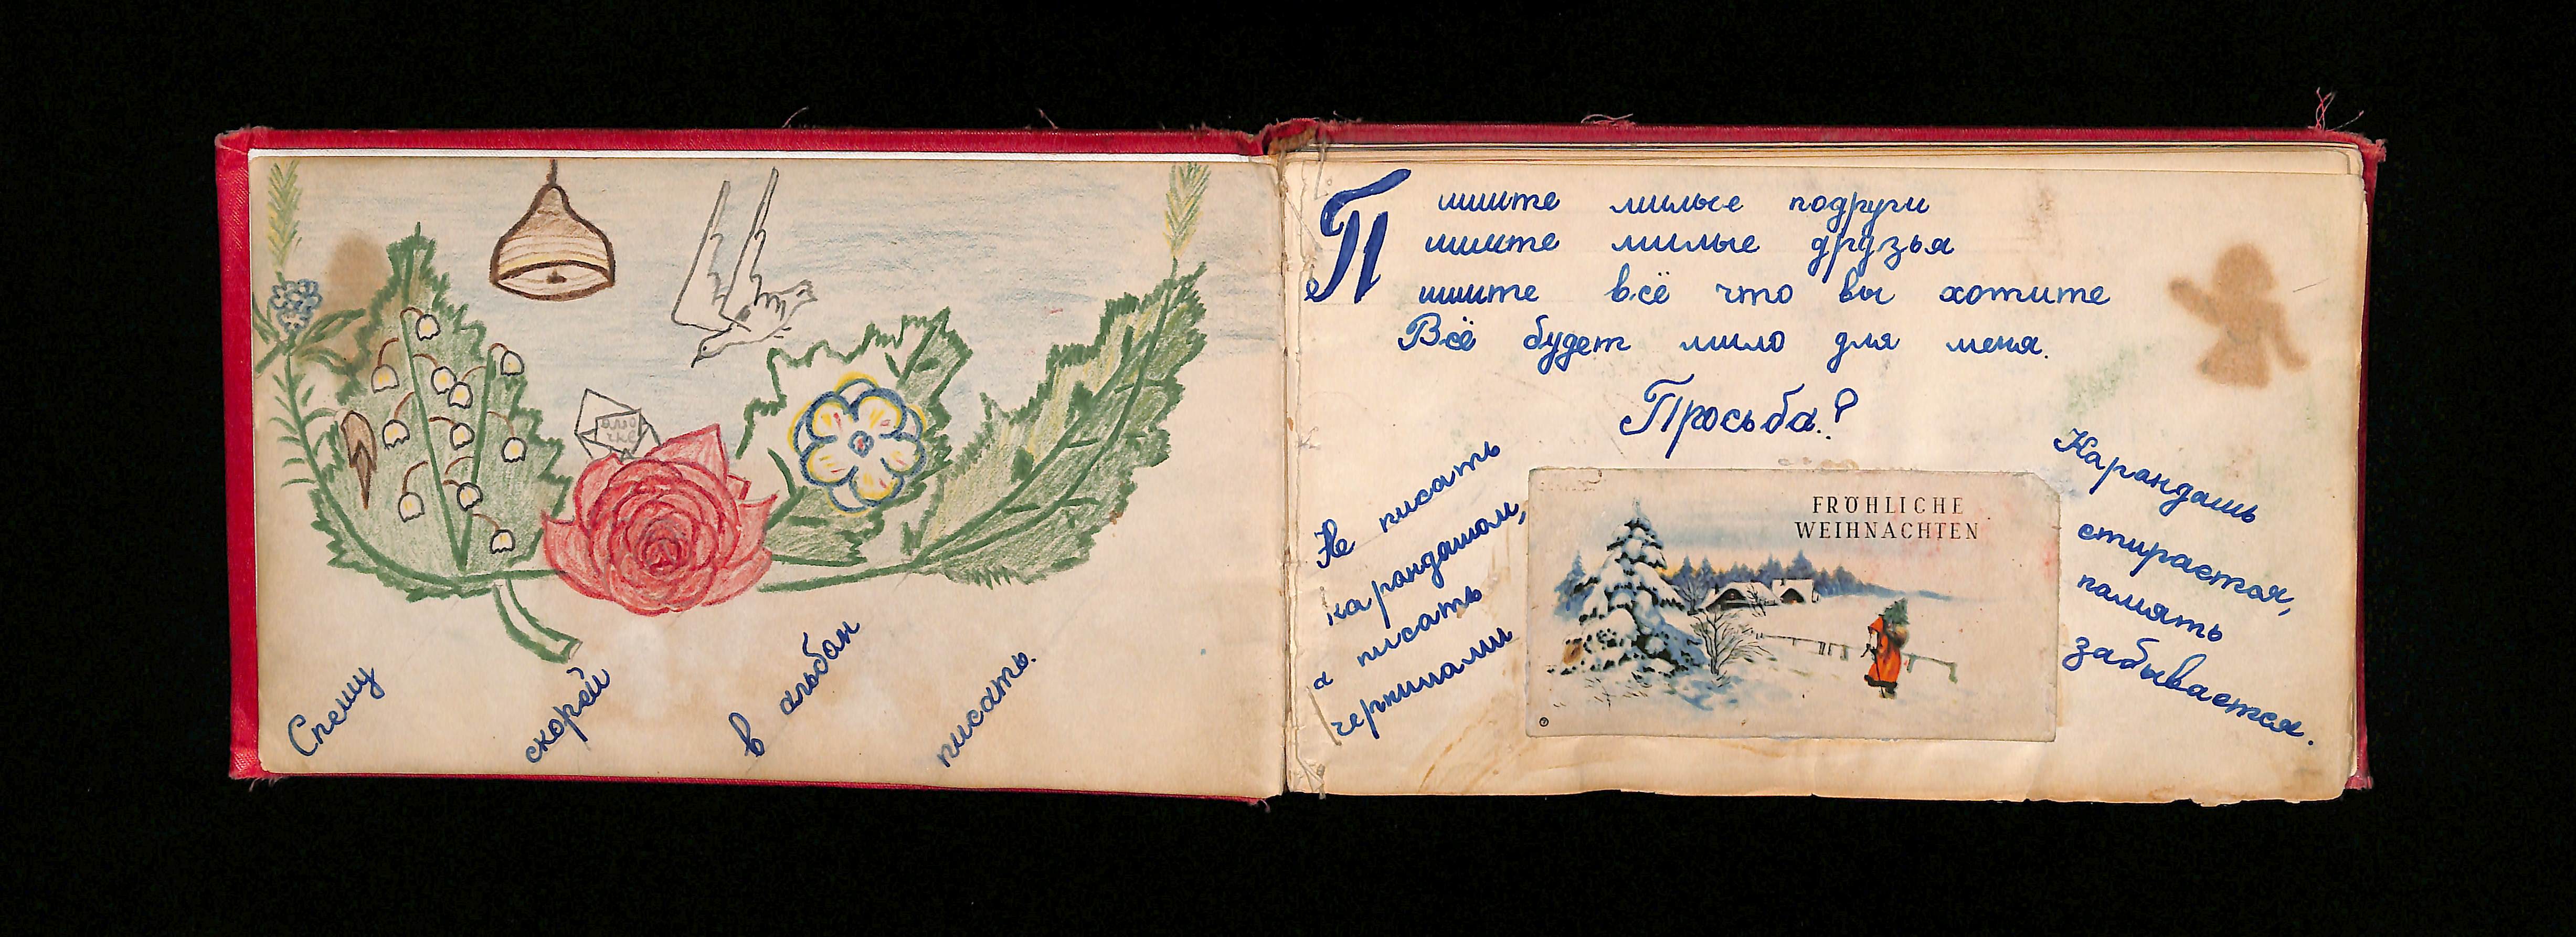 Спешу скорей в альбом писать.
Пишите милые подруги
ишите милые друзья
ишите всё что вы хотите
Всё будет мило для меня.
Просьба?
Не писать
карандашом,
а писать
чернилами
FRÖHLICHE
WEIHNACHTEN
Карандашь
стирается,
память
забывается.